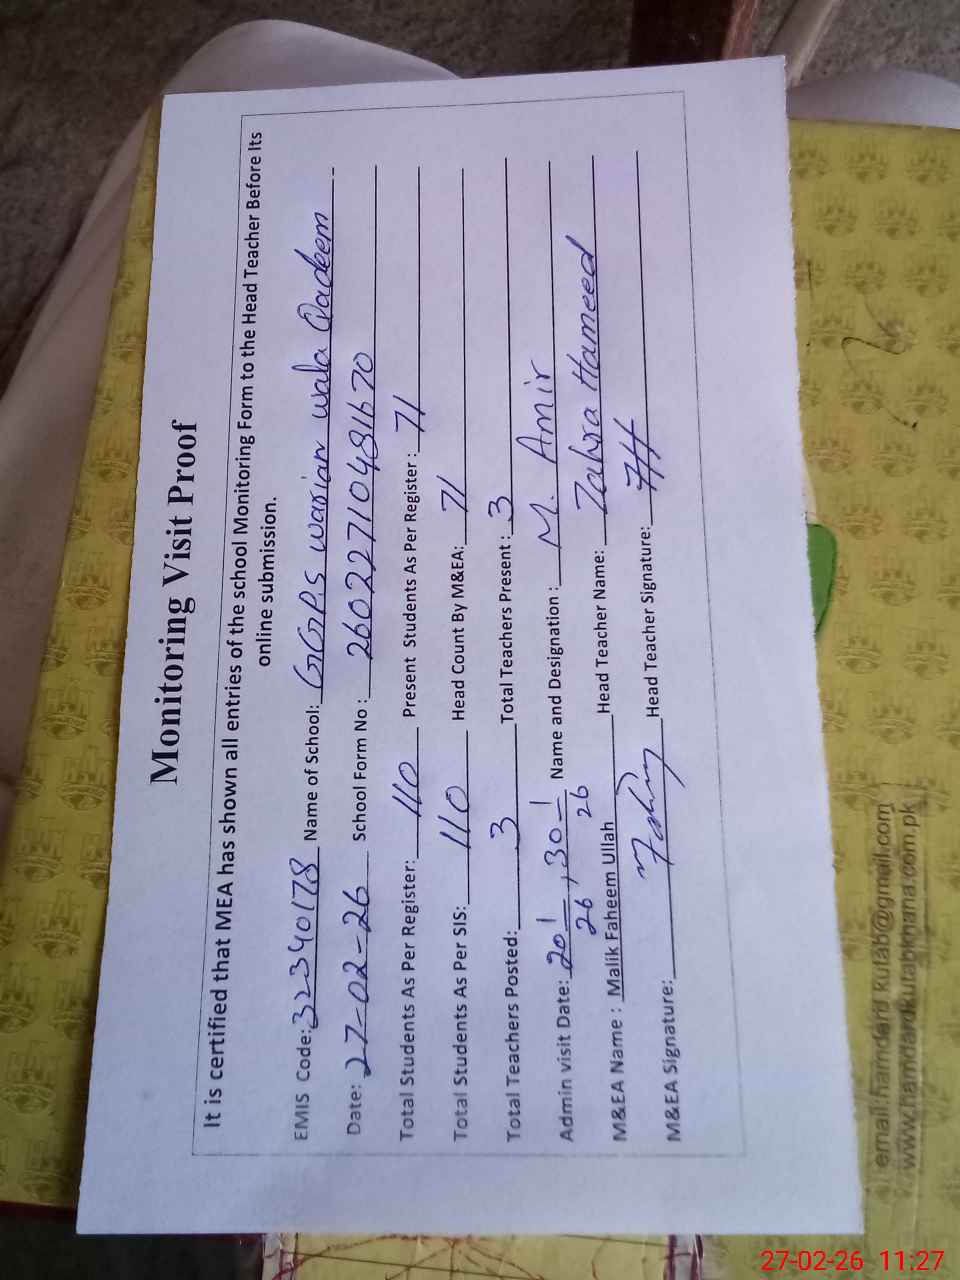 Monitoring Visit Proof
It is certified that MEA has shown all entries of the school Monitoring Form to the Head Teacher Before Its
online submission.
EMIS Code: 32340178 Name of School: GGPS warian wala Qadeem
Date: 27-02-26 School Form No : 260227104831670
Total Students As Per Register: 110 Present Students As Per Register: 71
Total Students As Per SIS: 110 Head Count By M&EA: 71
Total Teachers Posted: 3 Total Teachers Present : 3
Admin visit Date: 20/1/26, 30/1/26 Name and Designation : M. Amir
M&EA Name : Malik Faheem Ullah Head Teacher Name: Zahra Hameed
M&EA Signature: Head Teacher Signature: ZH
email:hamdard kutab@gmail.com
www.hamdardkutabkhana.com.pk
27-02-26 11:27